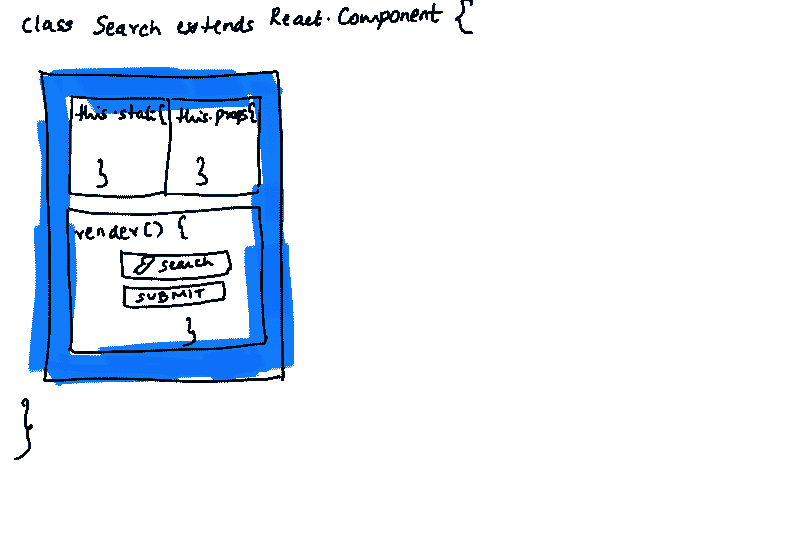 class Search extends React.Component {
this.state{ this.props{
} }
render() {
search
SUBMIT
}
}